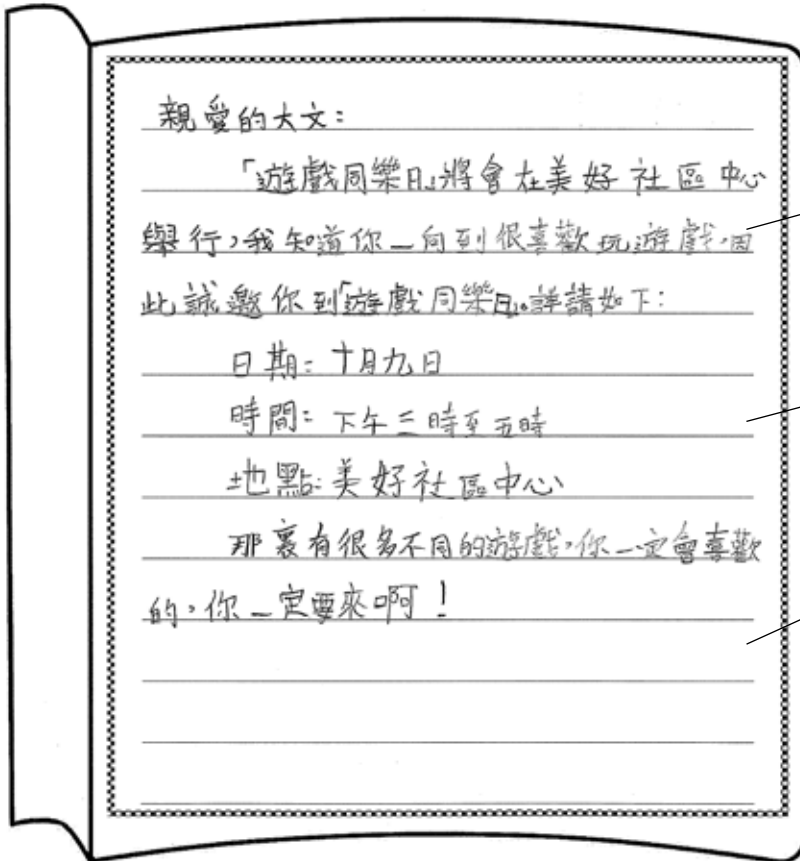 親愛的大文：
「遊戲同樂日」將會在美好社區中心
舉行，我知道你一向到很喜歡玩遊戲，因
此誠邀你到「遊戲同樂日」。詳請如下：
日期：十月九日
時間：下午三時至五時
地點：美好社區中心
那裏有很多不同的遊戲，你一定會喜歡
的，你一定要來啊！